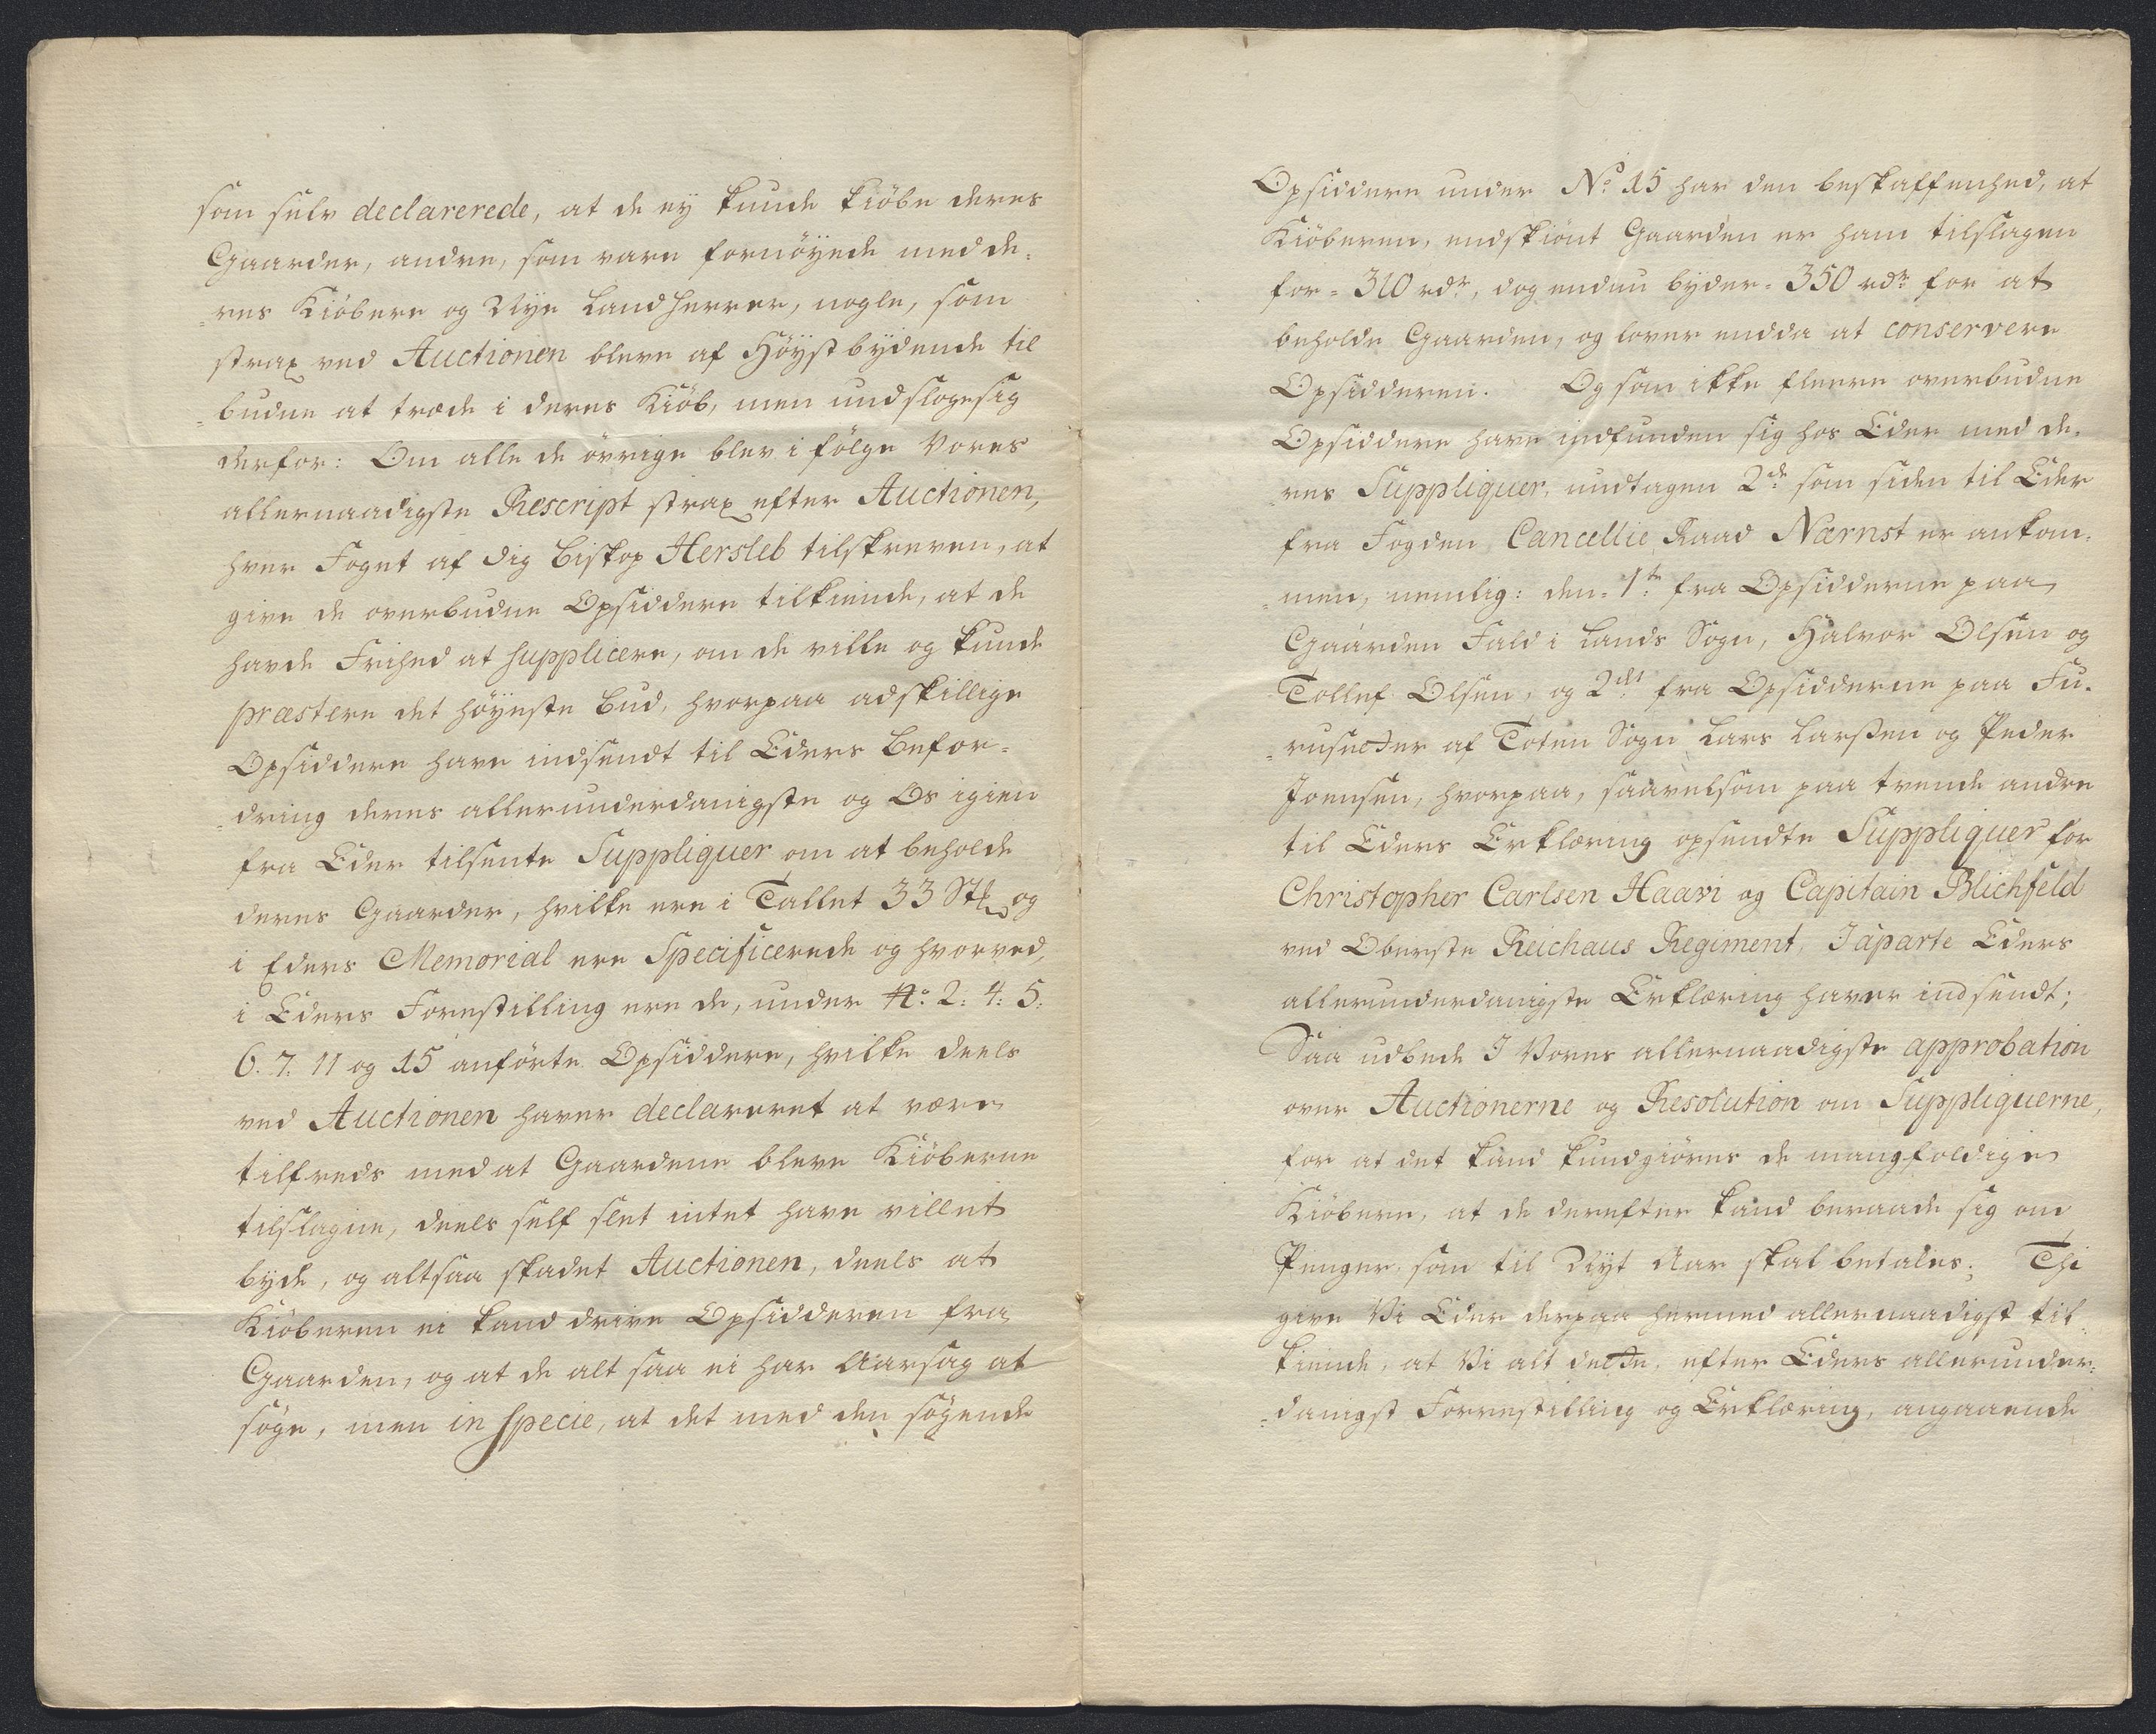 som selv declarerede, at de ey kunde kiöbe deres
Gaarder, andre, som vare fornöyede med de-
-res Kiöbere og Nye Landherrer, nogle, som
strax ved Auctionen bleve af Höystbydende til
-budne at træde i deres Kiöb, men undsloge sig
derfor: Om alle de övrige blev i fölge Vores
allernaadigste Rescript strax efter Auctionen,
hver Foget af dig Biskop Hersleb tilskreven, at
give de overbudne Opsiddere tilkiende, at de
havde Frihed at supplicere, om de ville og kunde
præstere det höyeste Bud, hvorpaa adskillige
Opsiddere have indsendt til Eders Befor-
-dring deres allerunderdanigste og Os igien
fra Eder tilsente Suppliquer om at beholde
deres Gaarder, hvilke ere i Tallet 33 Stk og
i Eders Memorial ere Specificerede og hvorved,
i Eders Forestilling ere de, under No. 2. 4. 5.
6. 7. 11 og 15 anförte Opsiddere, hvilke deels
ved Auctionen haver declareret at være
tilfreds med at Gaardene bleve Kiöberne
tilslagne, deels self slet intet have villet
byde, og altsaa skadet Auctionen, deels at
Kiöberen ei kand drive Opsidderen fra
Gaarden, og at de alt saa ei har Aarsag at
söge, men in specie, at det med den sögende
Opsiddere under No. 15 har den beskaffenhed, at
Kiöberen, endskiönt Gaarden er ham tilslagen
for = 310 rdr., dog endnu byder = 350 rdr. for at
beholde Gaarden, og lover endda at conservere
Opsidderen. Og som ikke fleere overbudne
Opsiddere have indfunden sig hos Eder med de-
-res Suppliquer, undtagen 2de. som siden til Eder
fra Fogden Cancellie Raad Nærnst er ankom-
-men, nemlig: den = 1te. fra Opsidderne paa
Gaarden Fald i Lands Sogn, Halvor Olsen og
Tollef Olsen, og 2det fra Opsidderne paa Fu-
-rusether af Toten Sogn Lars Larsen og Peder
Joensen, hvorpaa, saavelsom paa trende andre
til Eders Erklæring opsendte Suppliquer for
Christopher Carlsen Haavi og Capitain Blichfeld
ved Oberste Reichaus Regiment, I aparte Eders
allerunderdanigste Erklæring haver indsendt;
Saa udbede I Vores allernaadigste approbation
over Auctionerne og Resolution om Suppliquerne,
for at det kand kundgiöres de mangfoldige
Kiöbere, at de derefter kand beraade sig om
Penger, som til Nyt Aar skal betales; Thi
give Vi Eder derpaa hermed allernaadigst til-
kiende, at Vi alt dette, efter Eders allerunder-
-danigst Forrestilling og Erklæring, angaaende